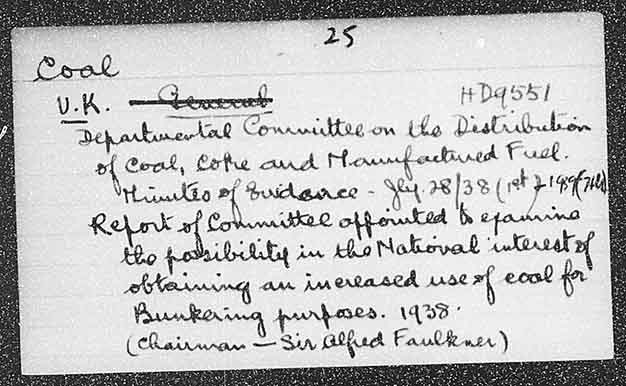 25
Coal
U.K. General
HD9551
Departmental Committee on the Distribution
of Coal, Coke and Manufactured Fuel.
Minutes of Evidence - Jly. 28/38 (1st)
Report of Committee appointed to examine
the possibility in the National interest of
obtaining an increased use of coal for
Bunkering purposes. 1938.
(Chairman — Sir Alfred Faulkner)